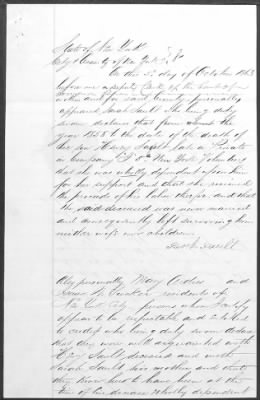 State of New York
City & County of New York } SS
On this 5 day of October 1863
before me a deputy Clerk of the Court of
within and for said County personally
appeared Sarah Sault who being duly
sworn declares that from about the
year 1858 to the date of the death of
her son Henry Sault late a Private
in Company I 5th New York Volunteers
that she was wholly dependent upon him
for her support and that she received
the proceeds of his labor therefor and that
the said deceased was never married
and consequently left surviving him
neither wife nor children.
Sarah Sault
Also personally Mary and
residents of
New York City persons whom I certify
appear to be respectable and entitled
to credit who being duly sworn declare
that they were well acquainted with
Henry Sault deceased and with
Sarah Sault his mother and that
they know her to have been at the
time of his decease wholly dependent